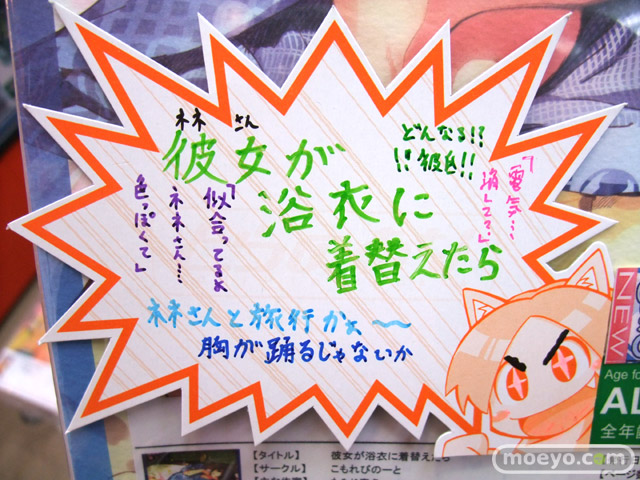 ネネさん
彼女が
浴衣に
着替えたら
どんなる!!
!! 彼色!!
「電気…
消して?」
「似合ってるよ
ネネさん…
色っぽくて」
ネネさんと旅行かぁ〜
胸が踊るじゃないか
NEW
Age fo
AL
全年齢
【タイトル】 彼女が浴衣に着替えたら
【サークル】 こもれびのーと
moeyo.com